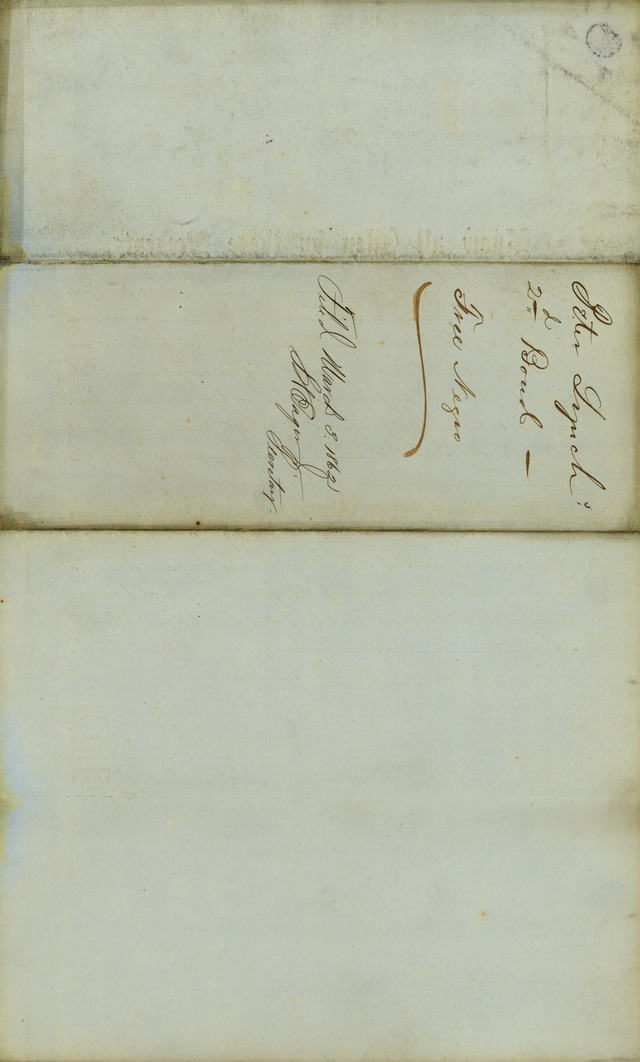 Peter Lynch
2nd Bond —
Free Negro
Fil'd March 3. 1862
Secretary.